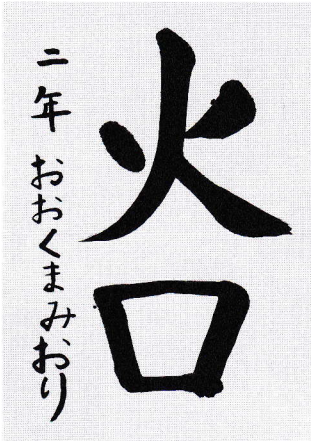 火口
二年 おおくまみおり